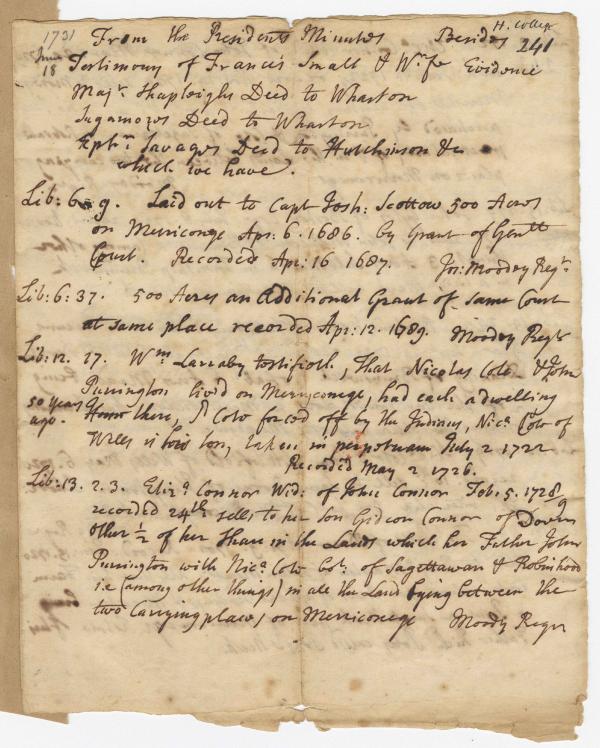 H. College
241
1731
June
18
From the Presidents Minutes Besides
Testimony of Francis Small & Wife Evidence
Majr. Shapleighs Deed to Wharton
Sagamores Deed to Wharton
Ephm. Savages Deed to Hutchinson &c
which we have.
Lib: 6. 9. Laid out to Capt Josh: Scottow 500 Acres
on Merriconeg Apr. 6. 1686. by Grant of Genll
Court. Recorded Apr: 16 1687. Jos: Moodey Regr.
Lib: 6: 37. 500 Acres an Additional Grant of same Court
at same place recorded Apr: 12. 1689. Moodey Regr
Lib: 12. 27. Wm Larraby testifieth, That Nicolas Cole & John
Purrington lived on Merryconege, had each a dwelling
50 years
ago.
House there, Cole forced off by the Indians, Nics. Cole of
Wells is his son, taken in perpetuam July 2 1722
Recorded May 2 1726.
Lib: 13. 2. 3. Eliza Connor Wid: of John Connor Feb. 5. 1728
recorded 24th. sells to her son Gideon Connor of Dover
other ½ of her share in the Lands which her Father John
Purrington with Nics. Cole bot. of Sagettawan & Robinhood
i.e (among other things) in all the Land lying between the
two Carrying places, on Merriconege Moody Regr